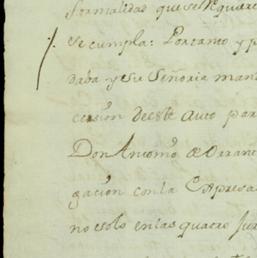 formalidad que se requiere
se cumpla: Portanto y p
daba y esu Señoria man
cersion deeste auto par
Don Antonio de Arran
gacion con la expresa
no solo en las quatro Jur